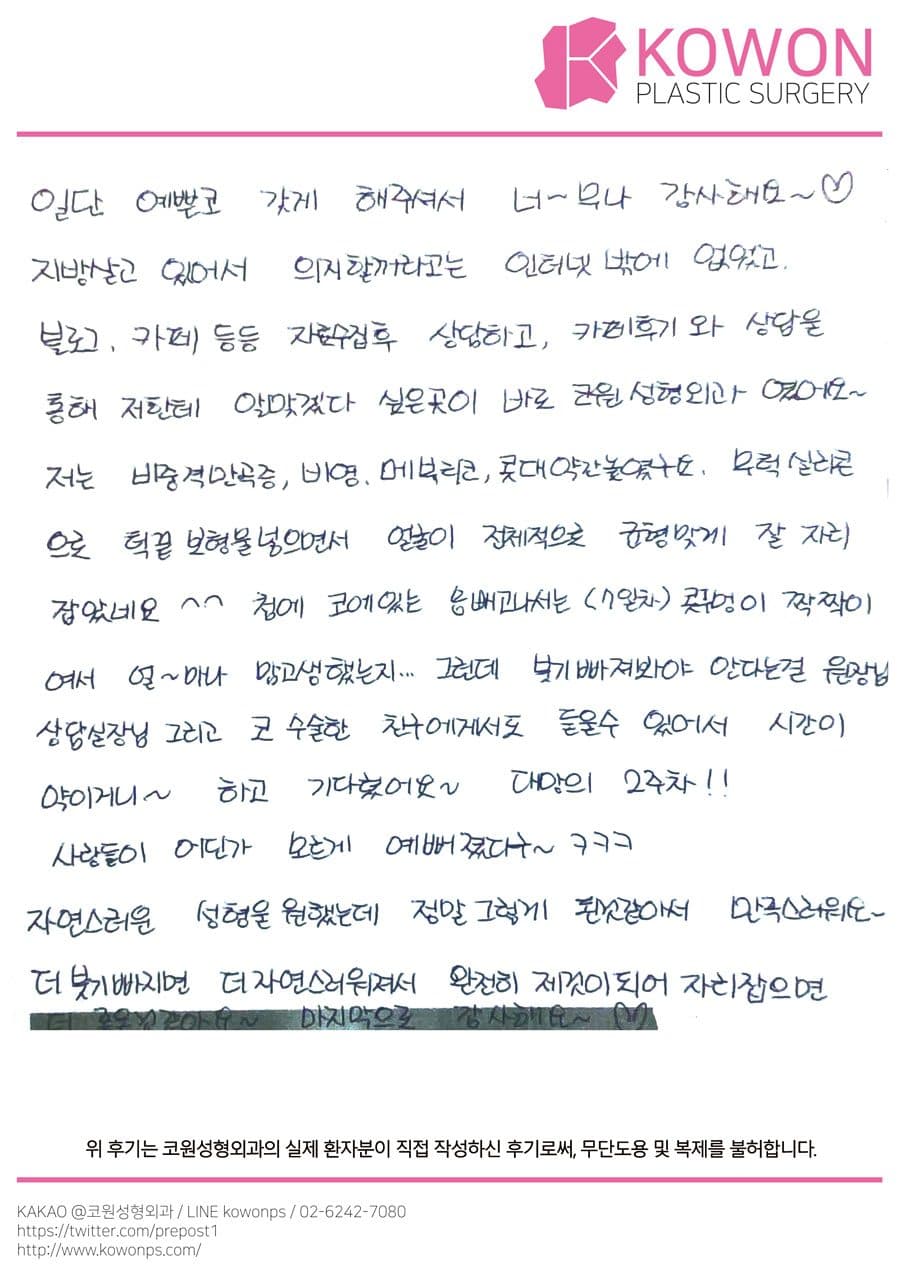 KOWON
PLASTIC SURGERY
일단 예쁜코 갖게 해주셔서 너~무나 감사해요~♡
지방살고 있어서 의지할꺼라고는 인터넷 밖에 없었고.
블로그, 카페 등등 자료수집후 상담하고, 카페후기와 상담을
통해 저한테 알맞겠다 싶은곳이 바로 코원성형외과 였어요~
저는 비중격만곡증, 비염, 메부리코, 콧대약간높였구요. 무턱 실리콘
으로 턱끝 보형물넣으면서 얼굴이 전체적으로 균형맞게 잘 자리
잡았네요 ^^ 첨에 코에있는 솜빼고나서는 (7일차) 콧구멍이 짝짝이
여서 얼~마나 맘고생했는지... 그런데 붓기빠져봐야 안다는걸 원장님
상담실장님 그리고 코 수술한 친구에게서도 들을수 있어서 시간이
약이거니~ 하고 기다렸어요~ 대망의 2주차!!
사람들이 어딘가 모르게 예뻐졌다구~ ㅋㅋㅋ
자연스러운 성형을 원했는데 정말그렇게 된것같아서 만족스러워요~
더 붓기빠지면 더자연스러워져서 완전히 제것이되어 자리잡으면
마지막으로 감사해요~ ♡
위 후기는 코원성형외과의 실제 환자분이 직접 작성하신 후기로써, 무단도용 및 복제를 불허합니다.
KAKAO @코원성형외과 / LINE kowonps / 02-6242-7080
https://twitter.com/prepost1
http://www.kowonps.com/